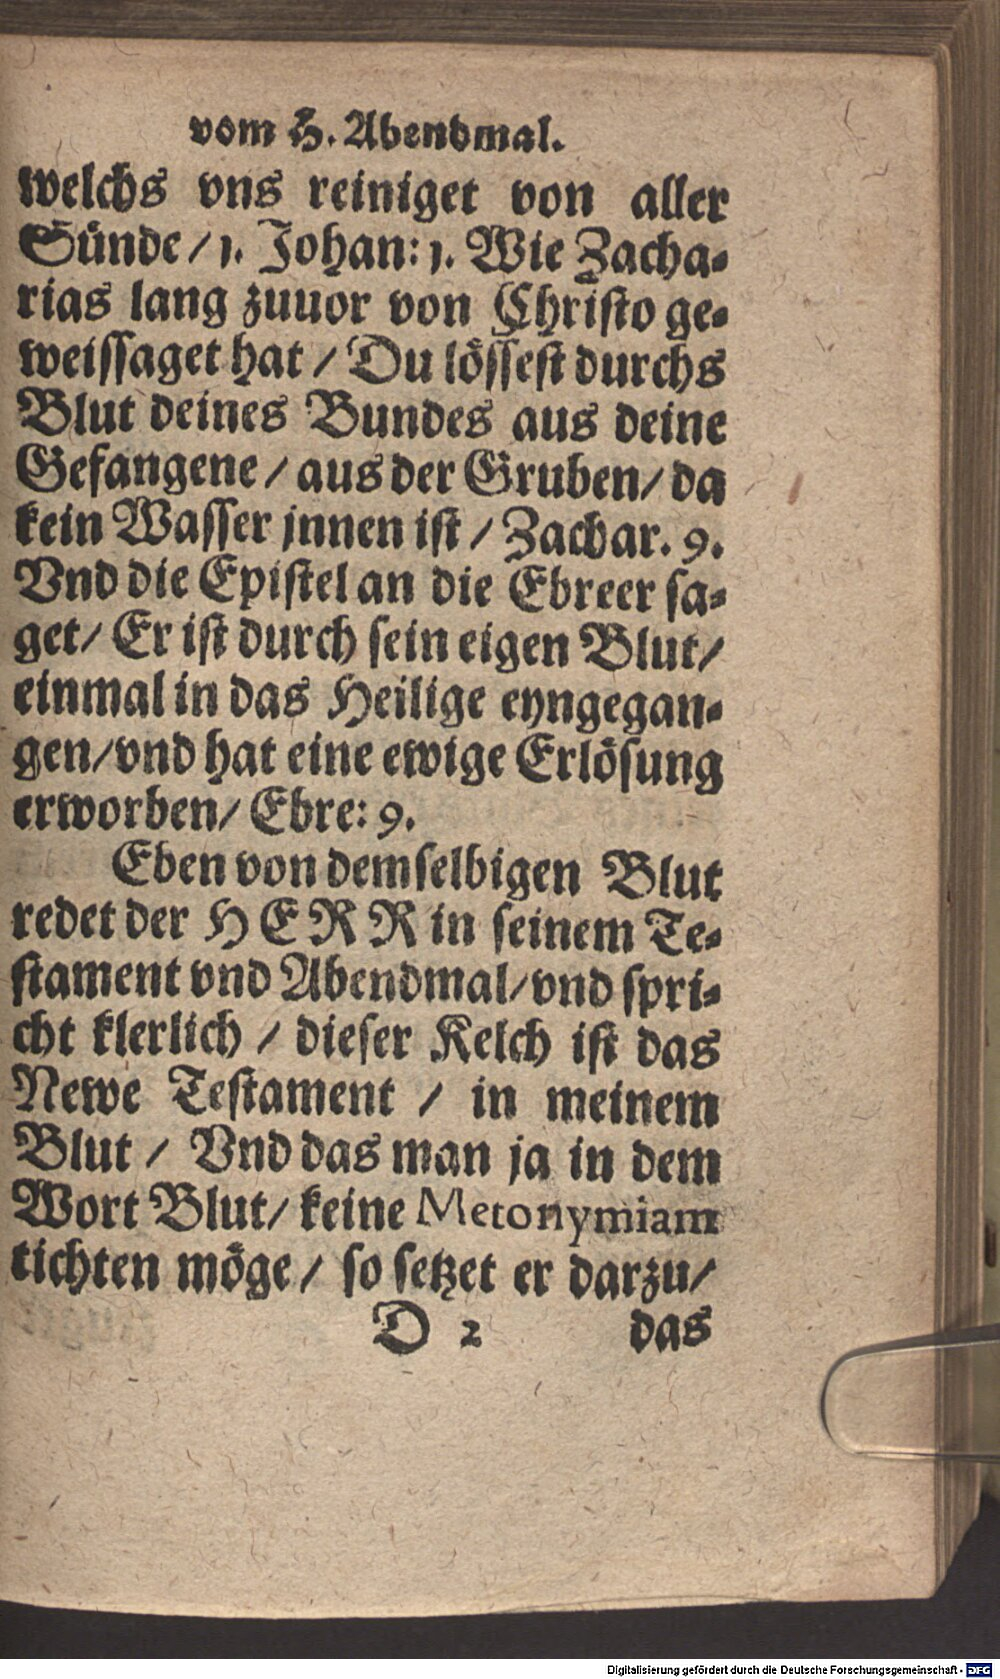 vom H. Abendmal.
welchs vns reiniget von aller
Sünde / 1. Johan: 1. Wie Zacha-
rias lang zuuor von Christo ge-
weissaget hat / Du lössest durchs
Blut deines Bundes aus deine
Gefangene / aus der Gruben / da
kein Wasser jnnen ist / Zachar. 9.
Vnd die Epistel an die Ebreer sa-
get / Er ist durch sein eigen Blut /
einmal in das Heilige eyngegan-
gen / vnd hat eine ewige Erlösung
erworben / Ebre: 9.
Eben von demselbigen Blut
redet der HERR in seinem Te-
stament vnd Abendmal / vnd spri-
cht klerlich / dieser Kelch ist das
Newe Testament / in meinem
Blut / Vnd das man ja in dem
Wort Blut / keine Metonymiam
tichten möge / so setzet er darzu /
D 2 das
Digitalisierung gefördert durch die Deutsche Forschungsgemeinschaft - DFG